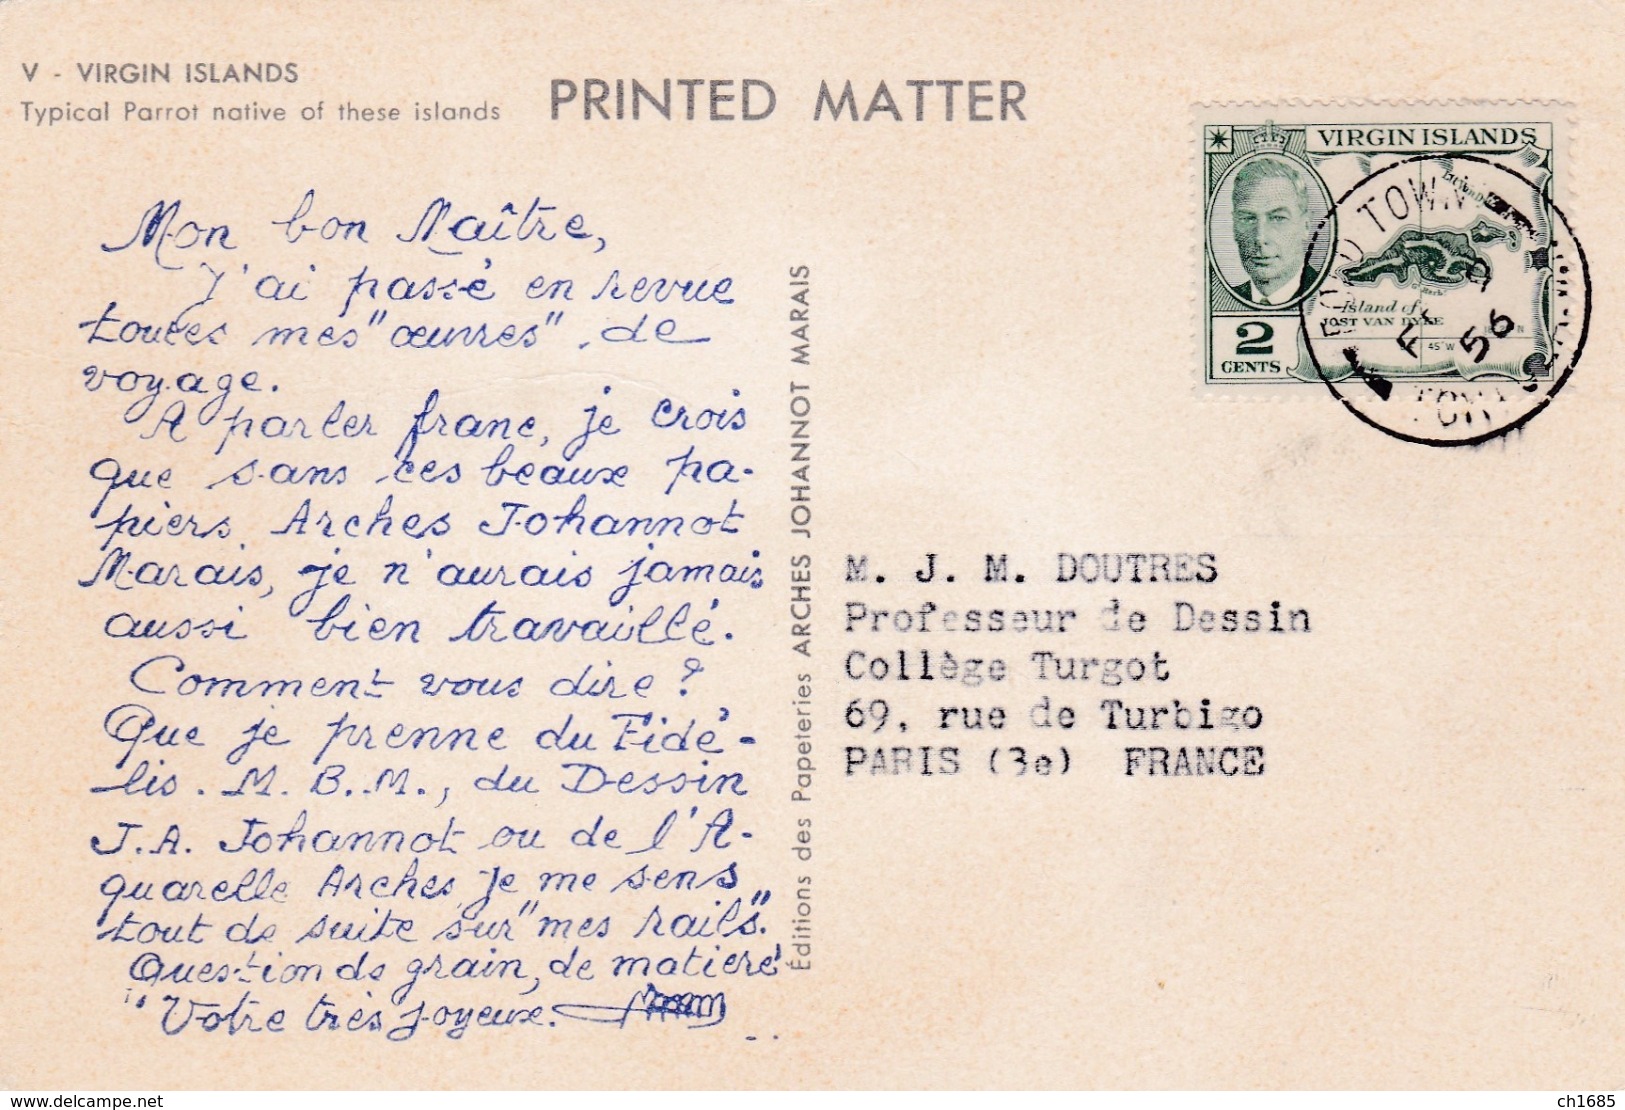 V - VIRGIN ISLANDS
Typical Parrot native of these islands
PRINTED MATTER
VIRGIN ISLANDS
Island of
JOST VAN DYKE
2
CENTS
45'W
TOWN
56
Mon bon Maître,
J'ai passé en revue
toutes mes "œuvres" de
voyage.
A parler franc, je crois
que sans ces beaux pa-
piers Arches Johannot
Marais, je n'aurais jamais
aussi bien travaillé.
Comment vous dire ?
Que je prenne du Fidé-
lis. M. B. M., du Dessin
J. A. Johannot ou de l'A-
quarelle Arches, je me sens
tout de suite sur "mes rails".
Question de grain, de matière!
Votre très joyeux.
Éditions des Papeteries ARCHES JOHANNOT MARAIS
M. J. M. DOUTRES
Professeur de Dessin
Collège Turgot
69, rue de Turbigo
PARIS (3e) FRANCE
www.delcampe.net
ch1685